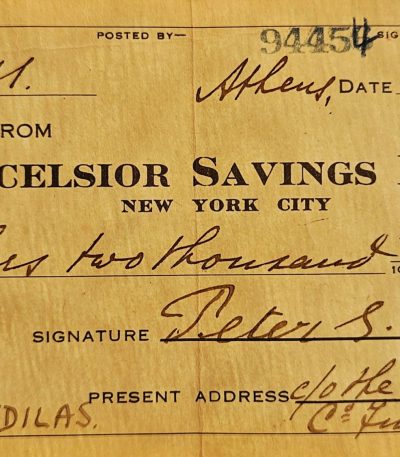 POSTED BY— 94454 SIG
Athens, DATE
FROM
CELSIOR SAVINGS
NEW YORK CITY
two thousand
SIGNATURE Peter S.
PRESENT ADDRESS c/o the
DILAS.